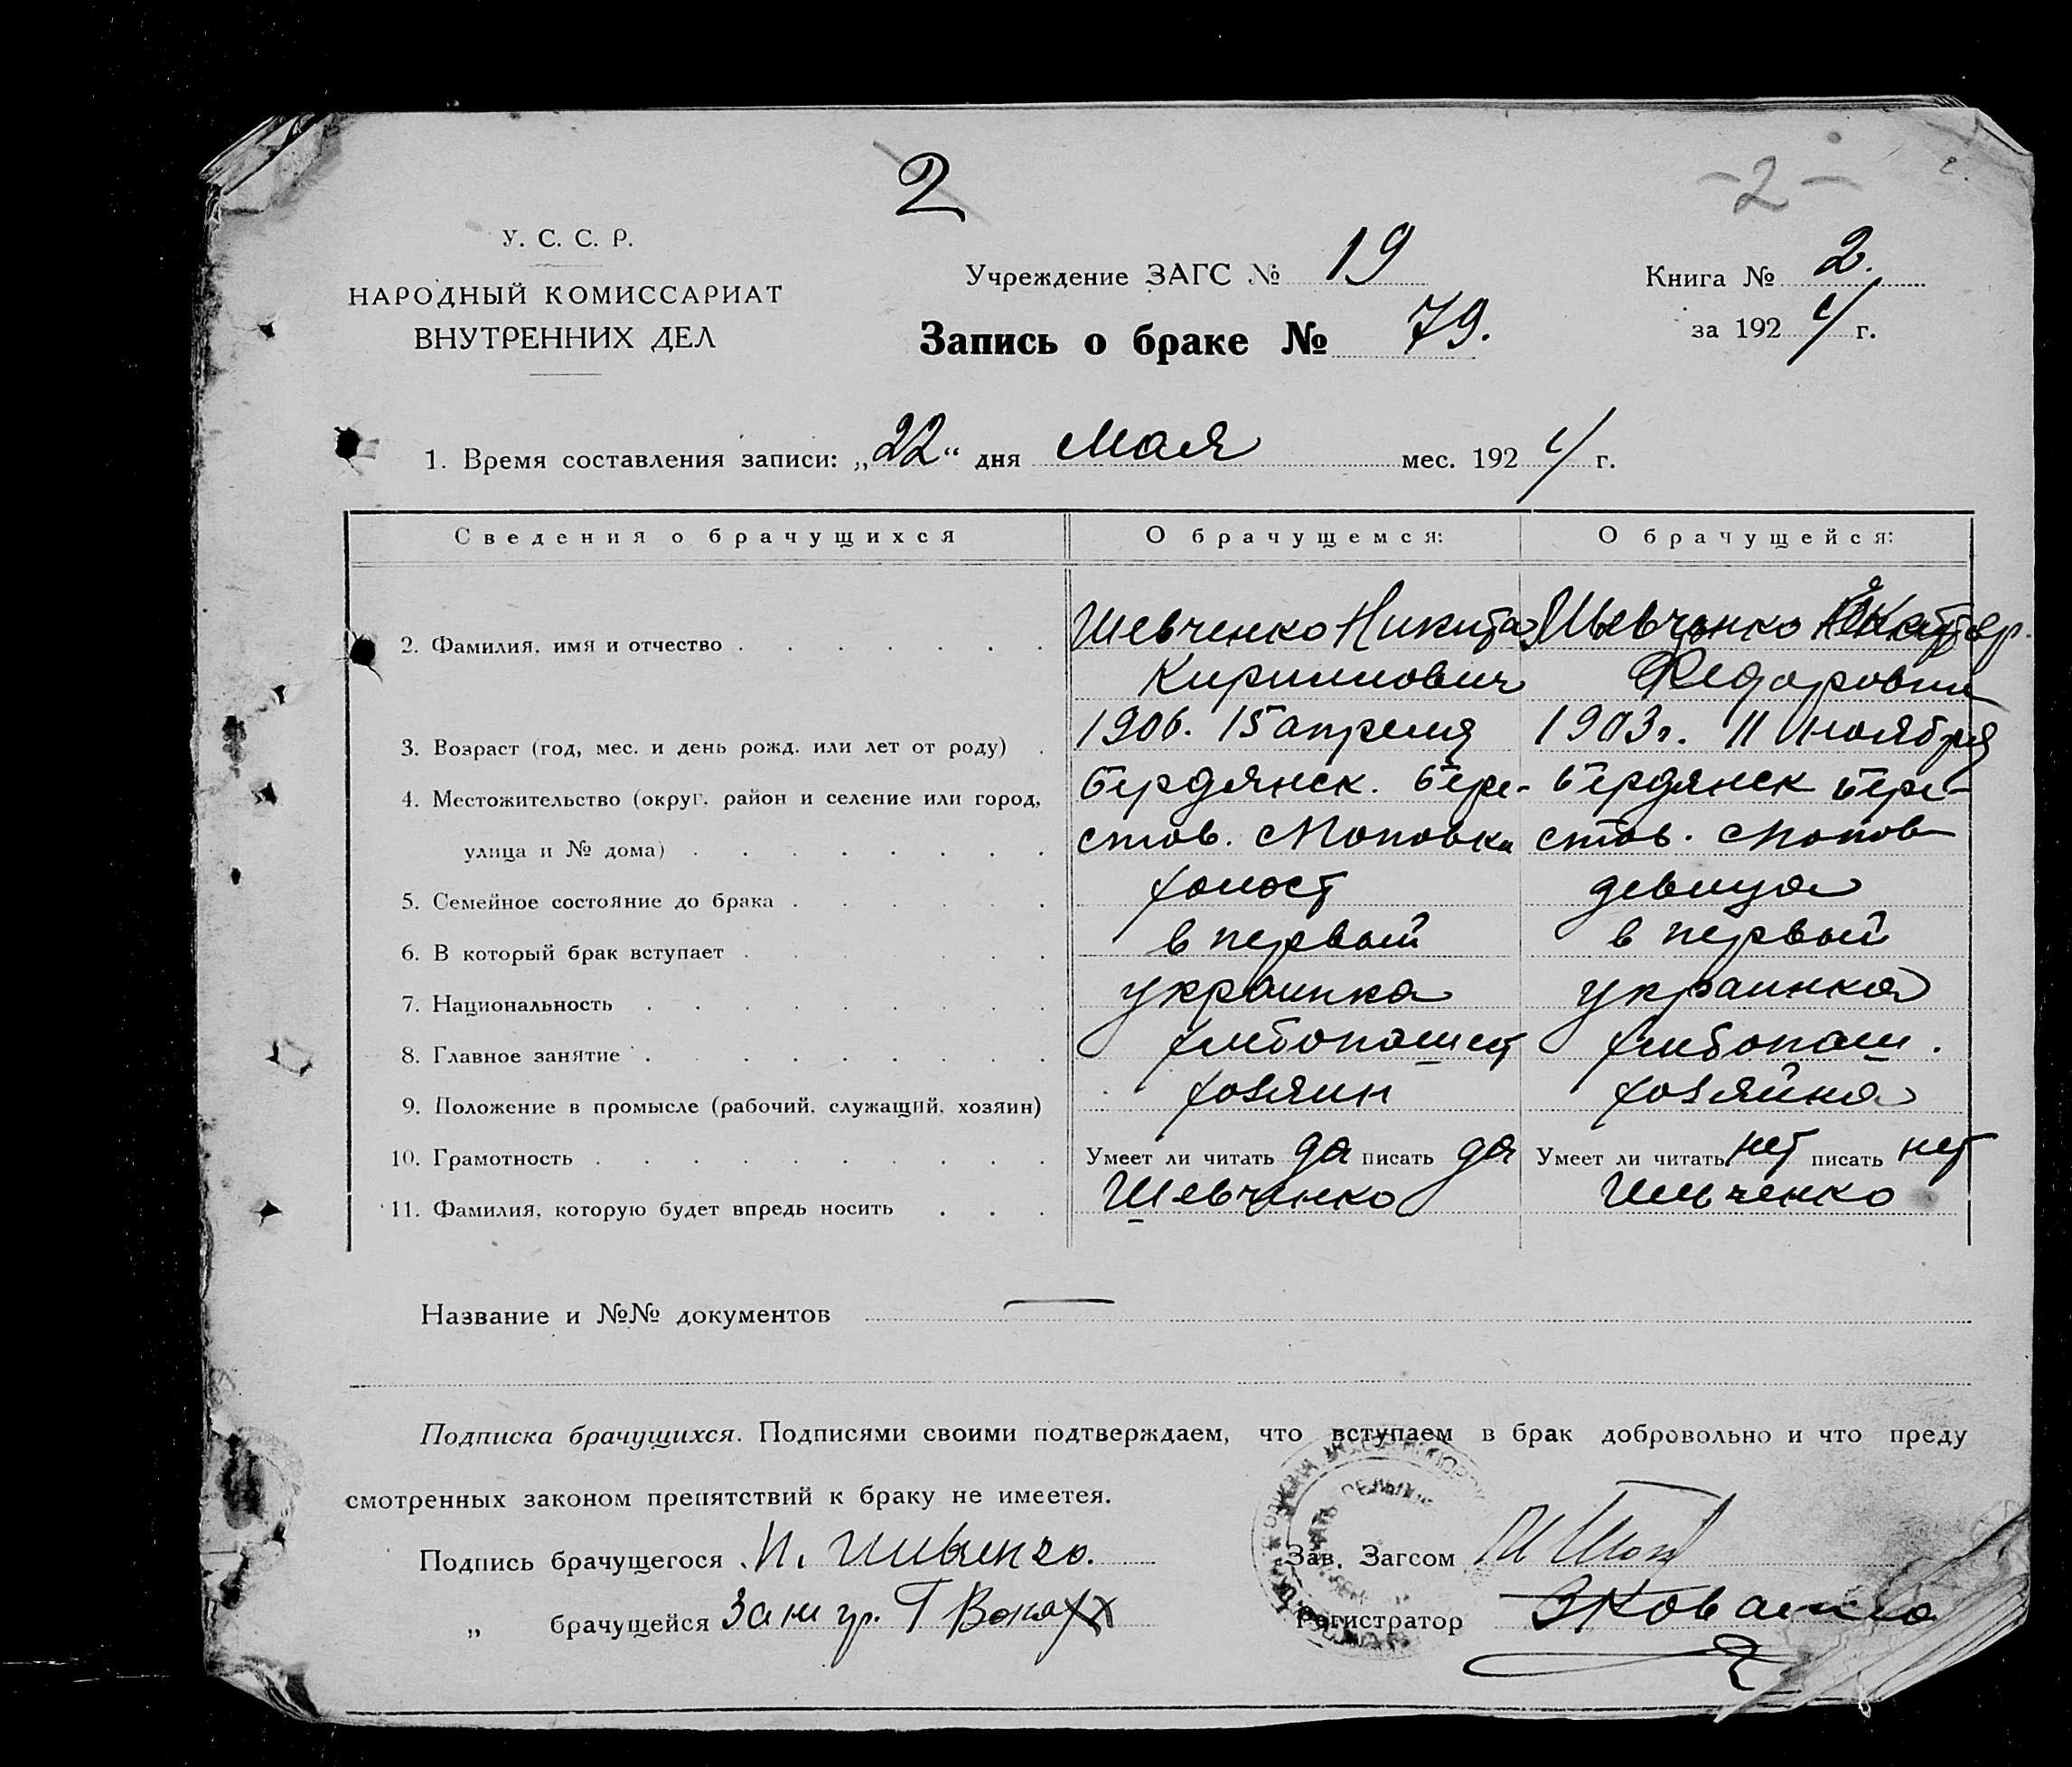 2
-2-
У. С. С. Р.
НАРОДНЫЙ КОМИССАРИАТ
ВНУТРЕННИХ ДЕЛ
Учреждение ЗАГС № 19
Книга № 2.
Запись о браке № 79.
за 1924 г.
1. Время составления записи: „22“ дня Мая мес. 1924 г.
Сведения о брачущихся О брачущемся: О брачущейся:
2. Фамилия, имя и отчество Шевченко Никита Шевченко Екатер.
Кириллович Федоровна
3. Возраст (год, мес. и день рожд. или лет от роду) 1906. 15 апреля 1903г. 11 Ноября
4. Местожительство (округ, район и селение или город, Бердянск. Бере- Бердянск Бере-
улица и № дома) стов. с Поповка стов. с Попов
5. Семейное состояние до брака холост девица
6. В который брак вступает в первый в первый
7. Национальность украинка украинка
8. Главное занятие хлебопашец хлебопаш.
9. Положение в промысле (рабочий, служащий, хозяин) хозяин хозяйка
10. Грамотность Умеет ли читать да писать да Умеет ли читать нет писать нет
11. Фамилия, которую будет впредь носить Шевченко Шевченко
Название и №№ документов —
Подписка брачущихся. Подписями своими подтверждаем, что вступаем в брак добровольно и что преду
смотренных законом препятствий к браку не имеется.
Подпись брачущегося Н. Шевченко.
Зав. Загсом
„ брачущейся За н гр.
Регистратор